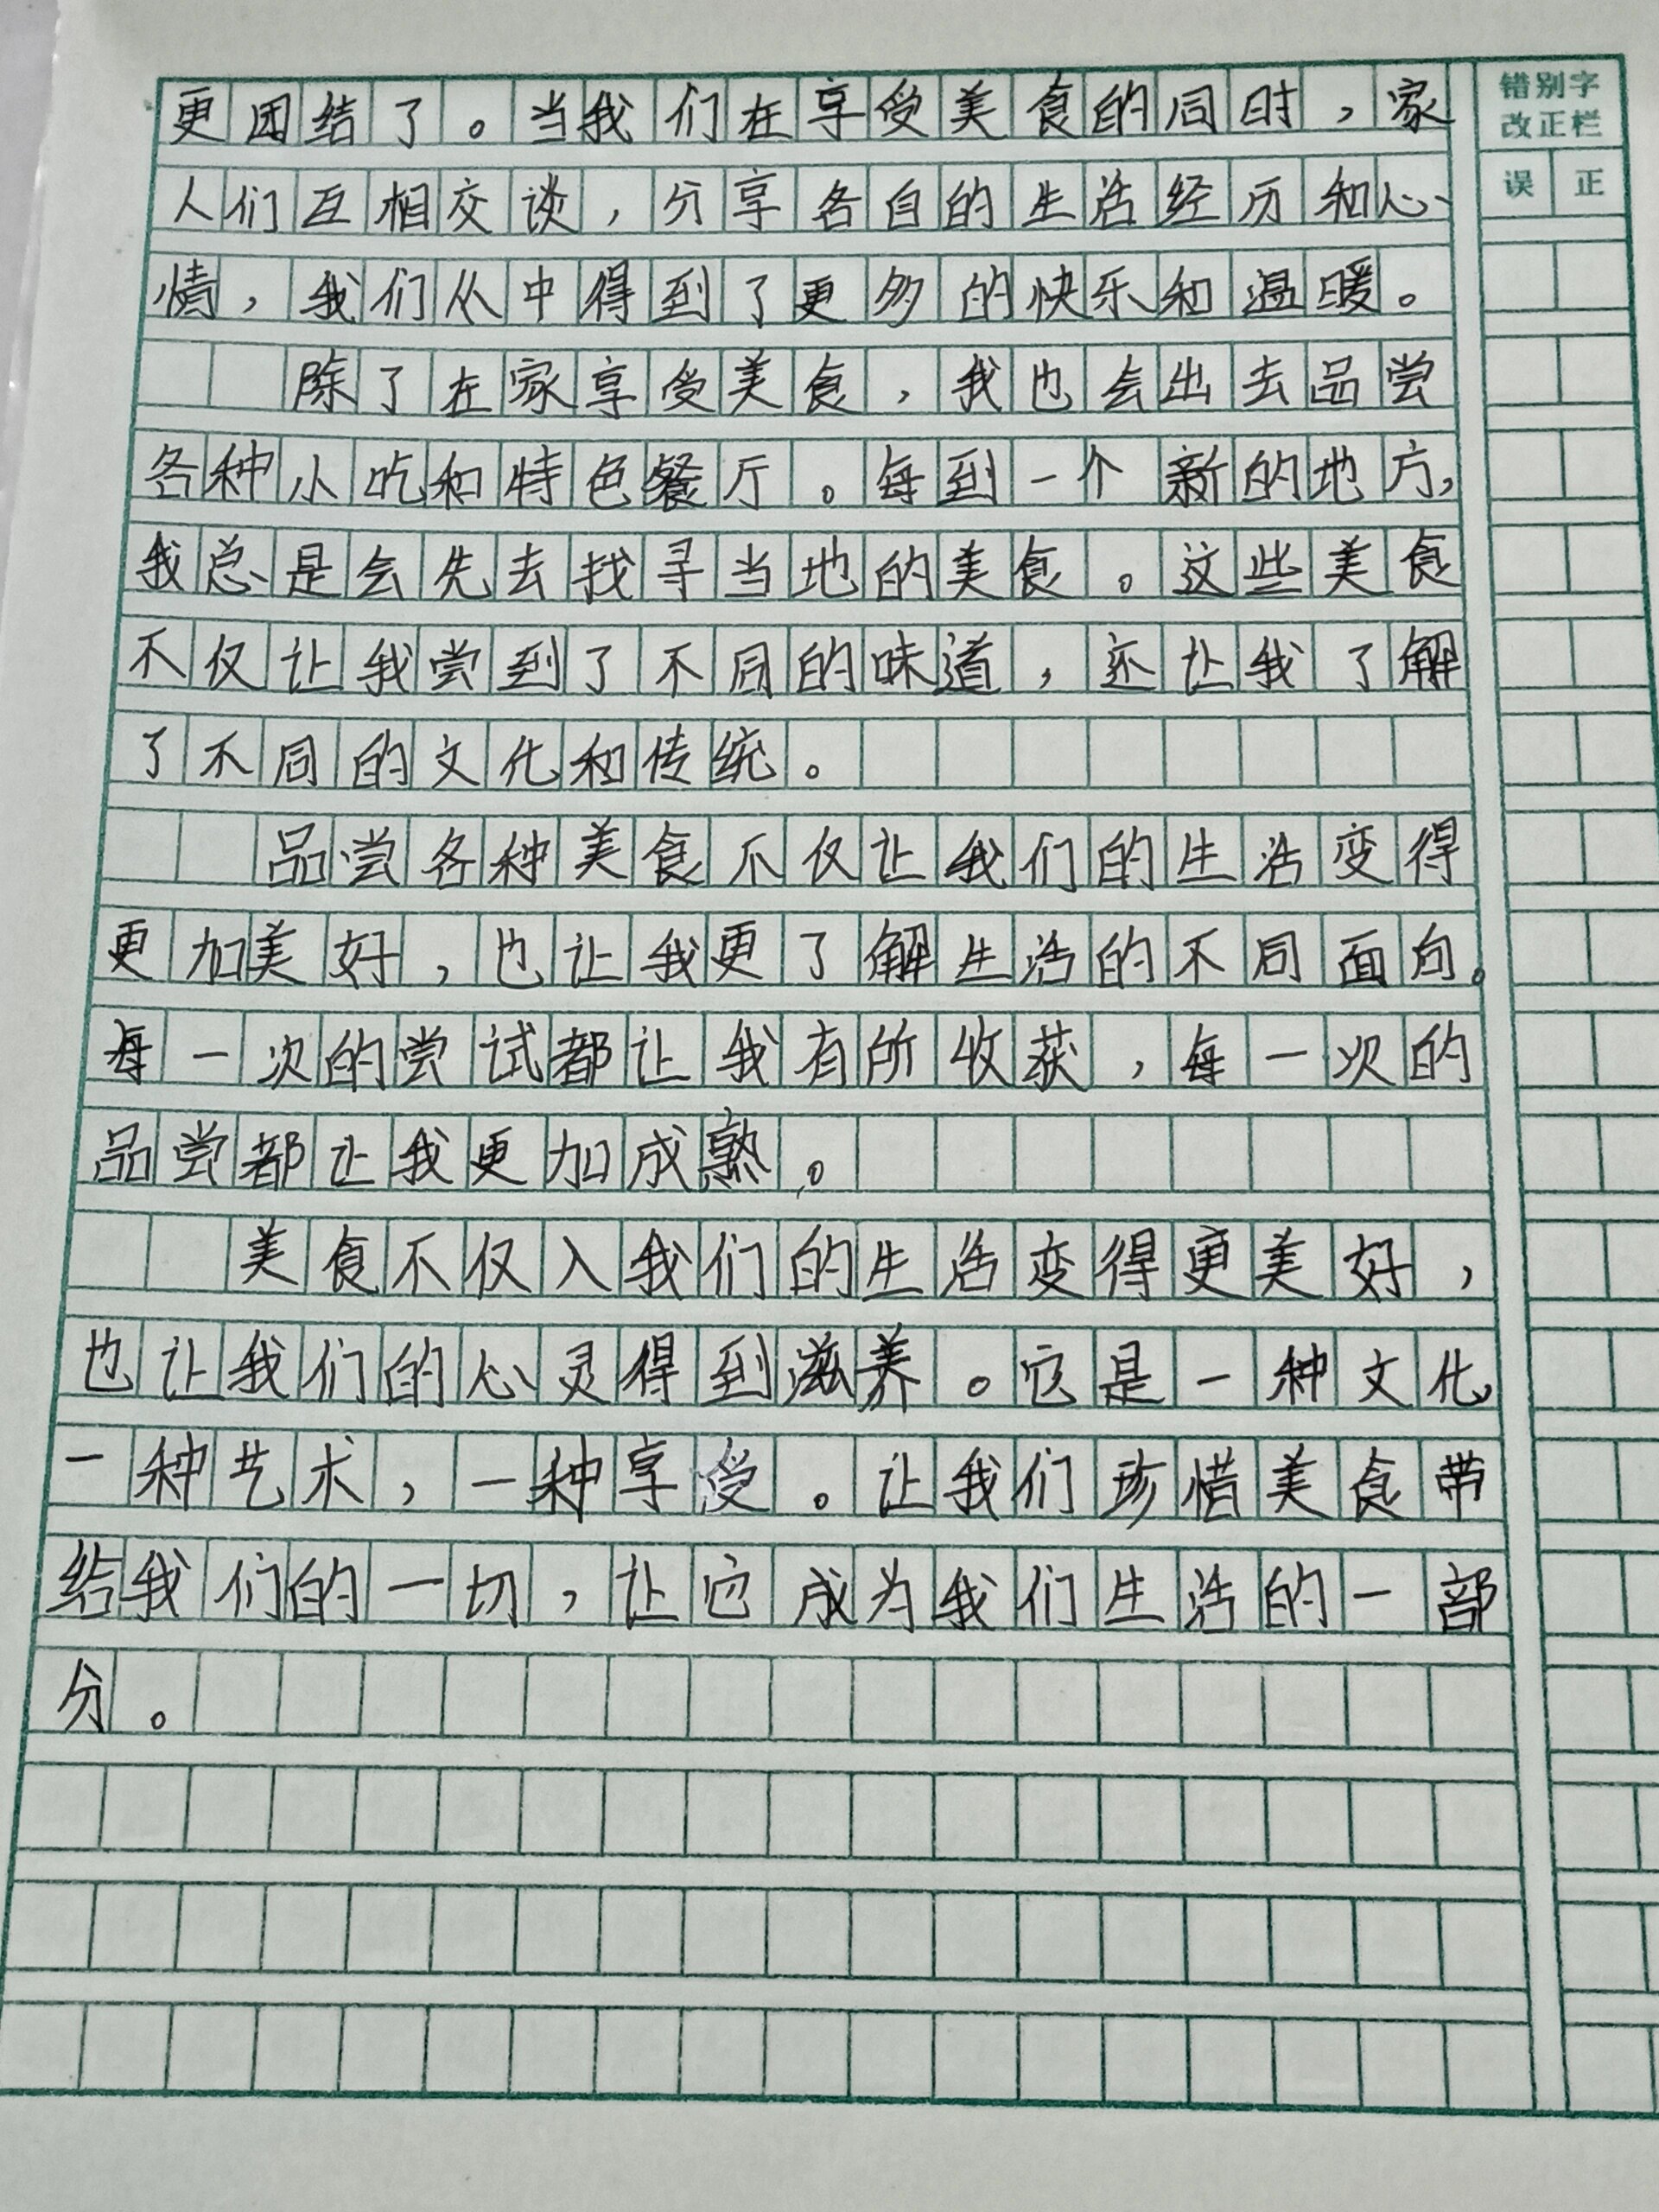 更团结了。当我们在享受美食的同时，家
人们互相交谈，分享各自的生活经历和心
情，我们从中得到了更多的快乐和温暖。
除了在家享受美食，我也会出去品尝
各种小吃和特色餐厅。每到一个新的地方，
我总是会先去找寻当地的美食。这些美食
不仅让我尝到了不同的味道，还让我了解
了不同的文化和传统。
品尝各种美食不仅让我们的生活变得
更加美好，也让我更了解生活的不同面向。
每一次的尝试都让我有所收获，每一次的
品尝都让我更加成熟。
美食不仅入我们的生活变得更美好，
也让我们的心灵得到滋养。它是一种文化，
一种艺术，一种享受。让我们珍惜美食带
给我们的一切，让它成为我们生活的一部
分。
错别字
改正栏
误 正